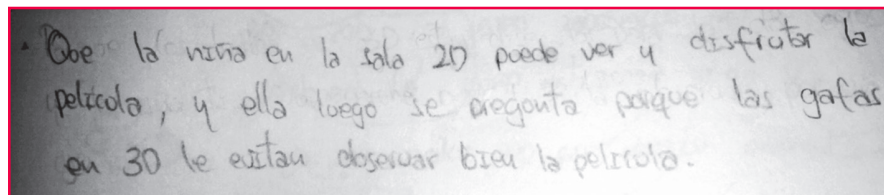 · Que la niña en la sala 2D puede ver y disfrutar la
película, y ella luego se pregunta porque las gafas
en 3D le evitan observar bien la película.